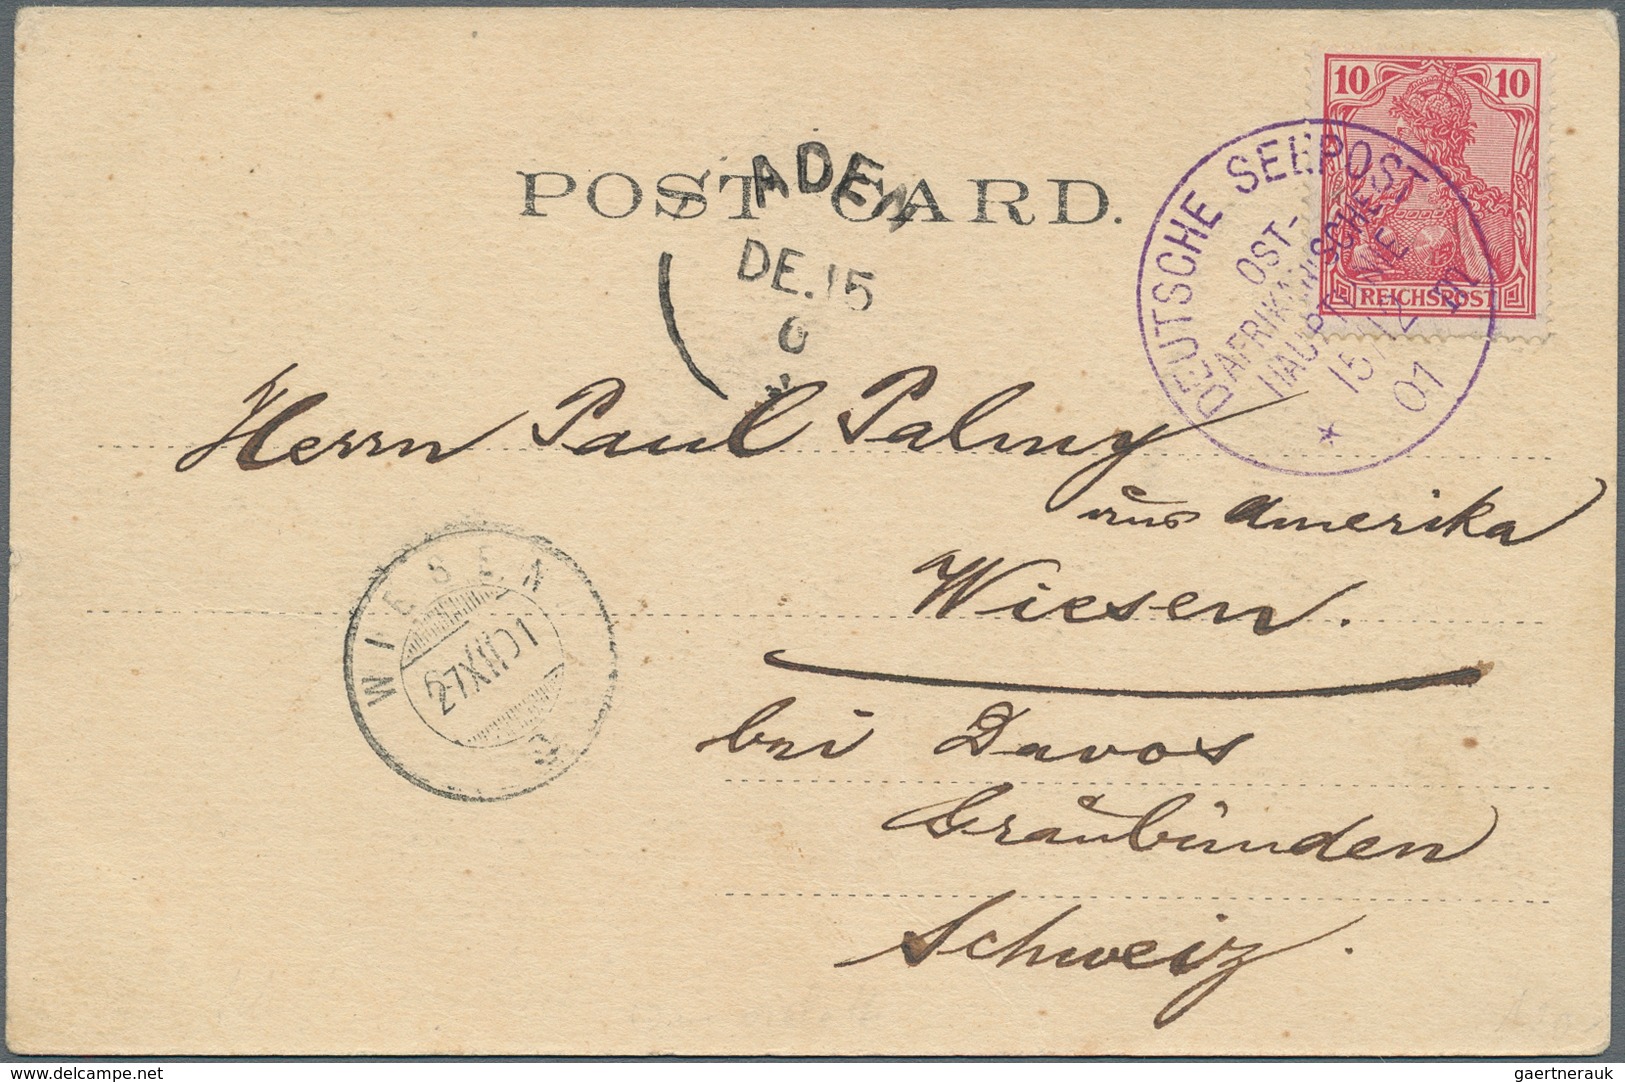 10 10
REICHSPOST
DEUTSCHE SEEPOST
OST-
AFRIKANISCHE
HAUPTLINIE
15/12
01
POST CARD.
ADEN
DE.15
0
Herrn Paul Palmy
aus Amerika
Wiesen.
WIESEN
27XII01
bei Davos
Graubünden
Schweiz.
www.delcampe.net
gaertnerauk